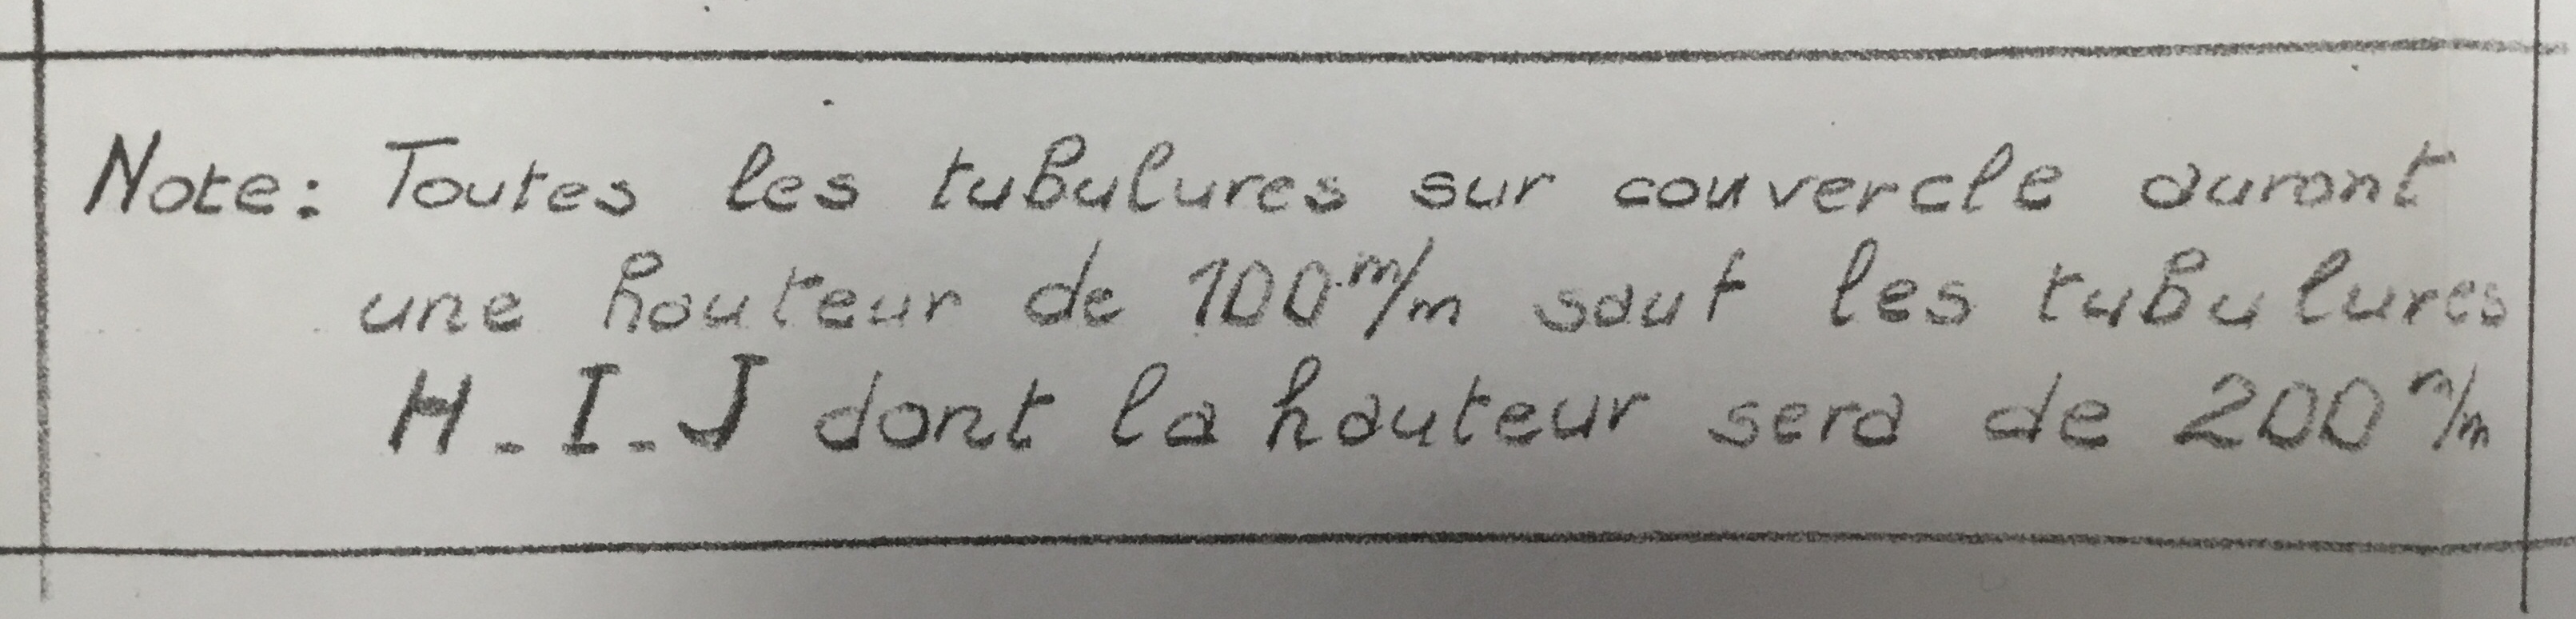 Note: Toutes les tubulures sur couvercle auront
une hauteur de 100 m/m sauf les tubulures
H - I - J dont la hauteur sera de 200 m/m